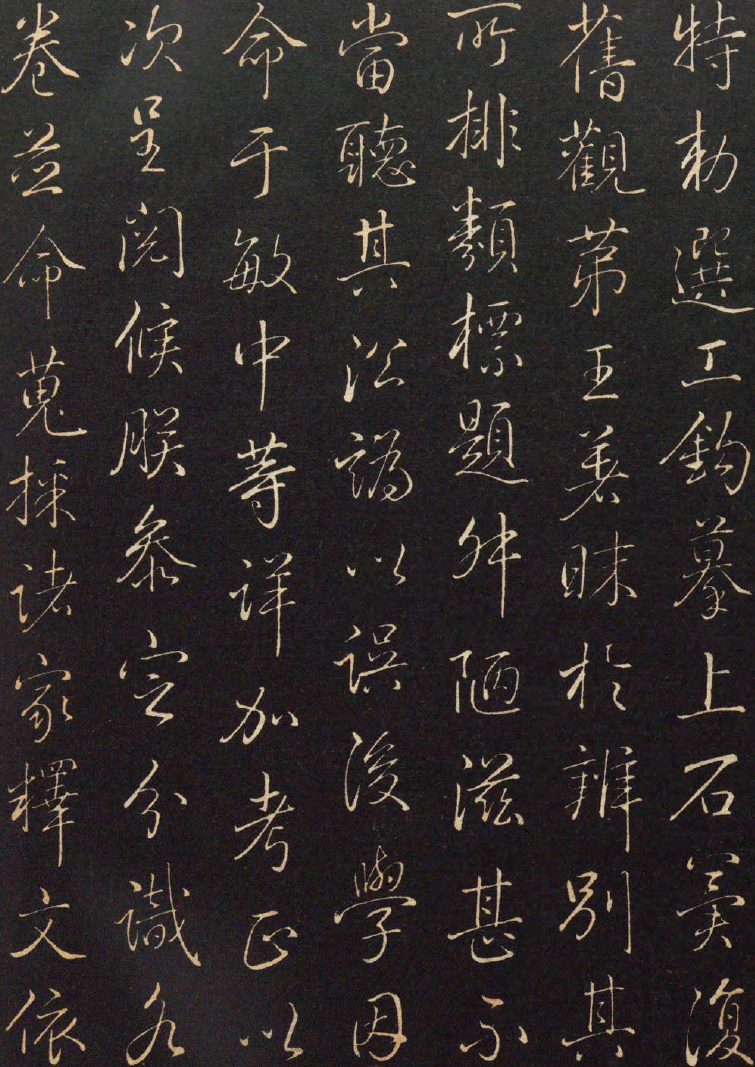 特勅選工鈎摹上石冀復
舊觀苐王著昧於辨別其
所排類標題舛陋滋甚不
當聽其沿譌以誤後學因
命于敏中等詳加考正以
次呈閲候朕叅定分識各
卷並命蒐採諸家釋文依